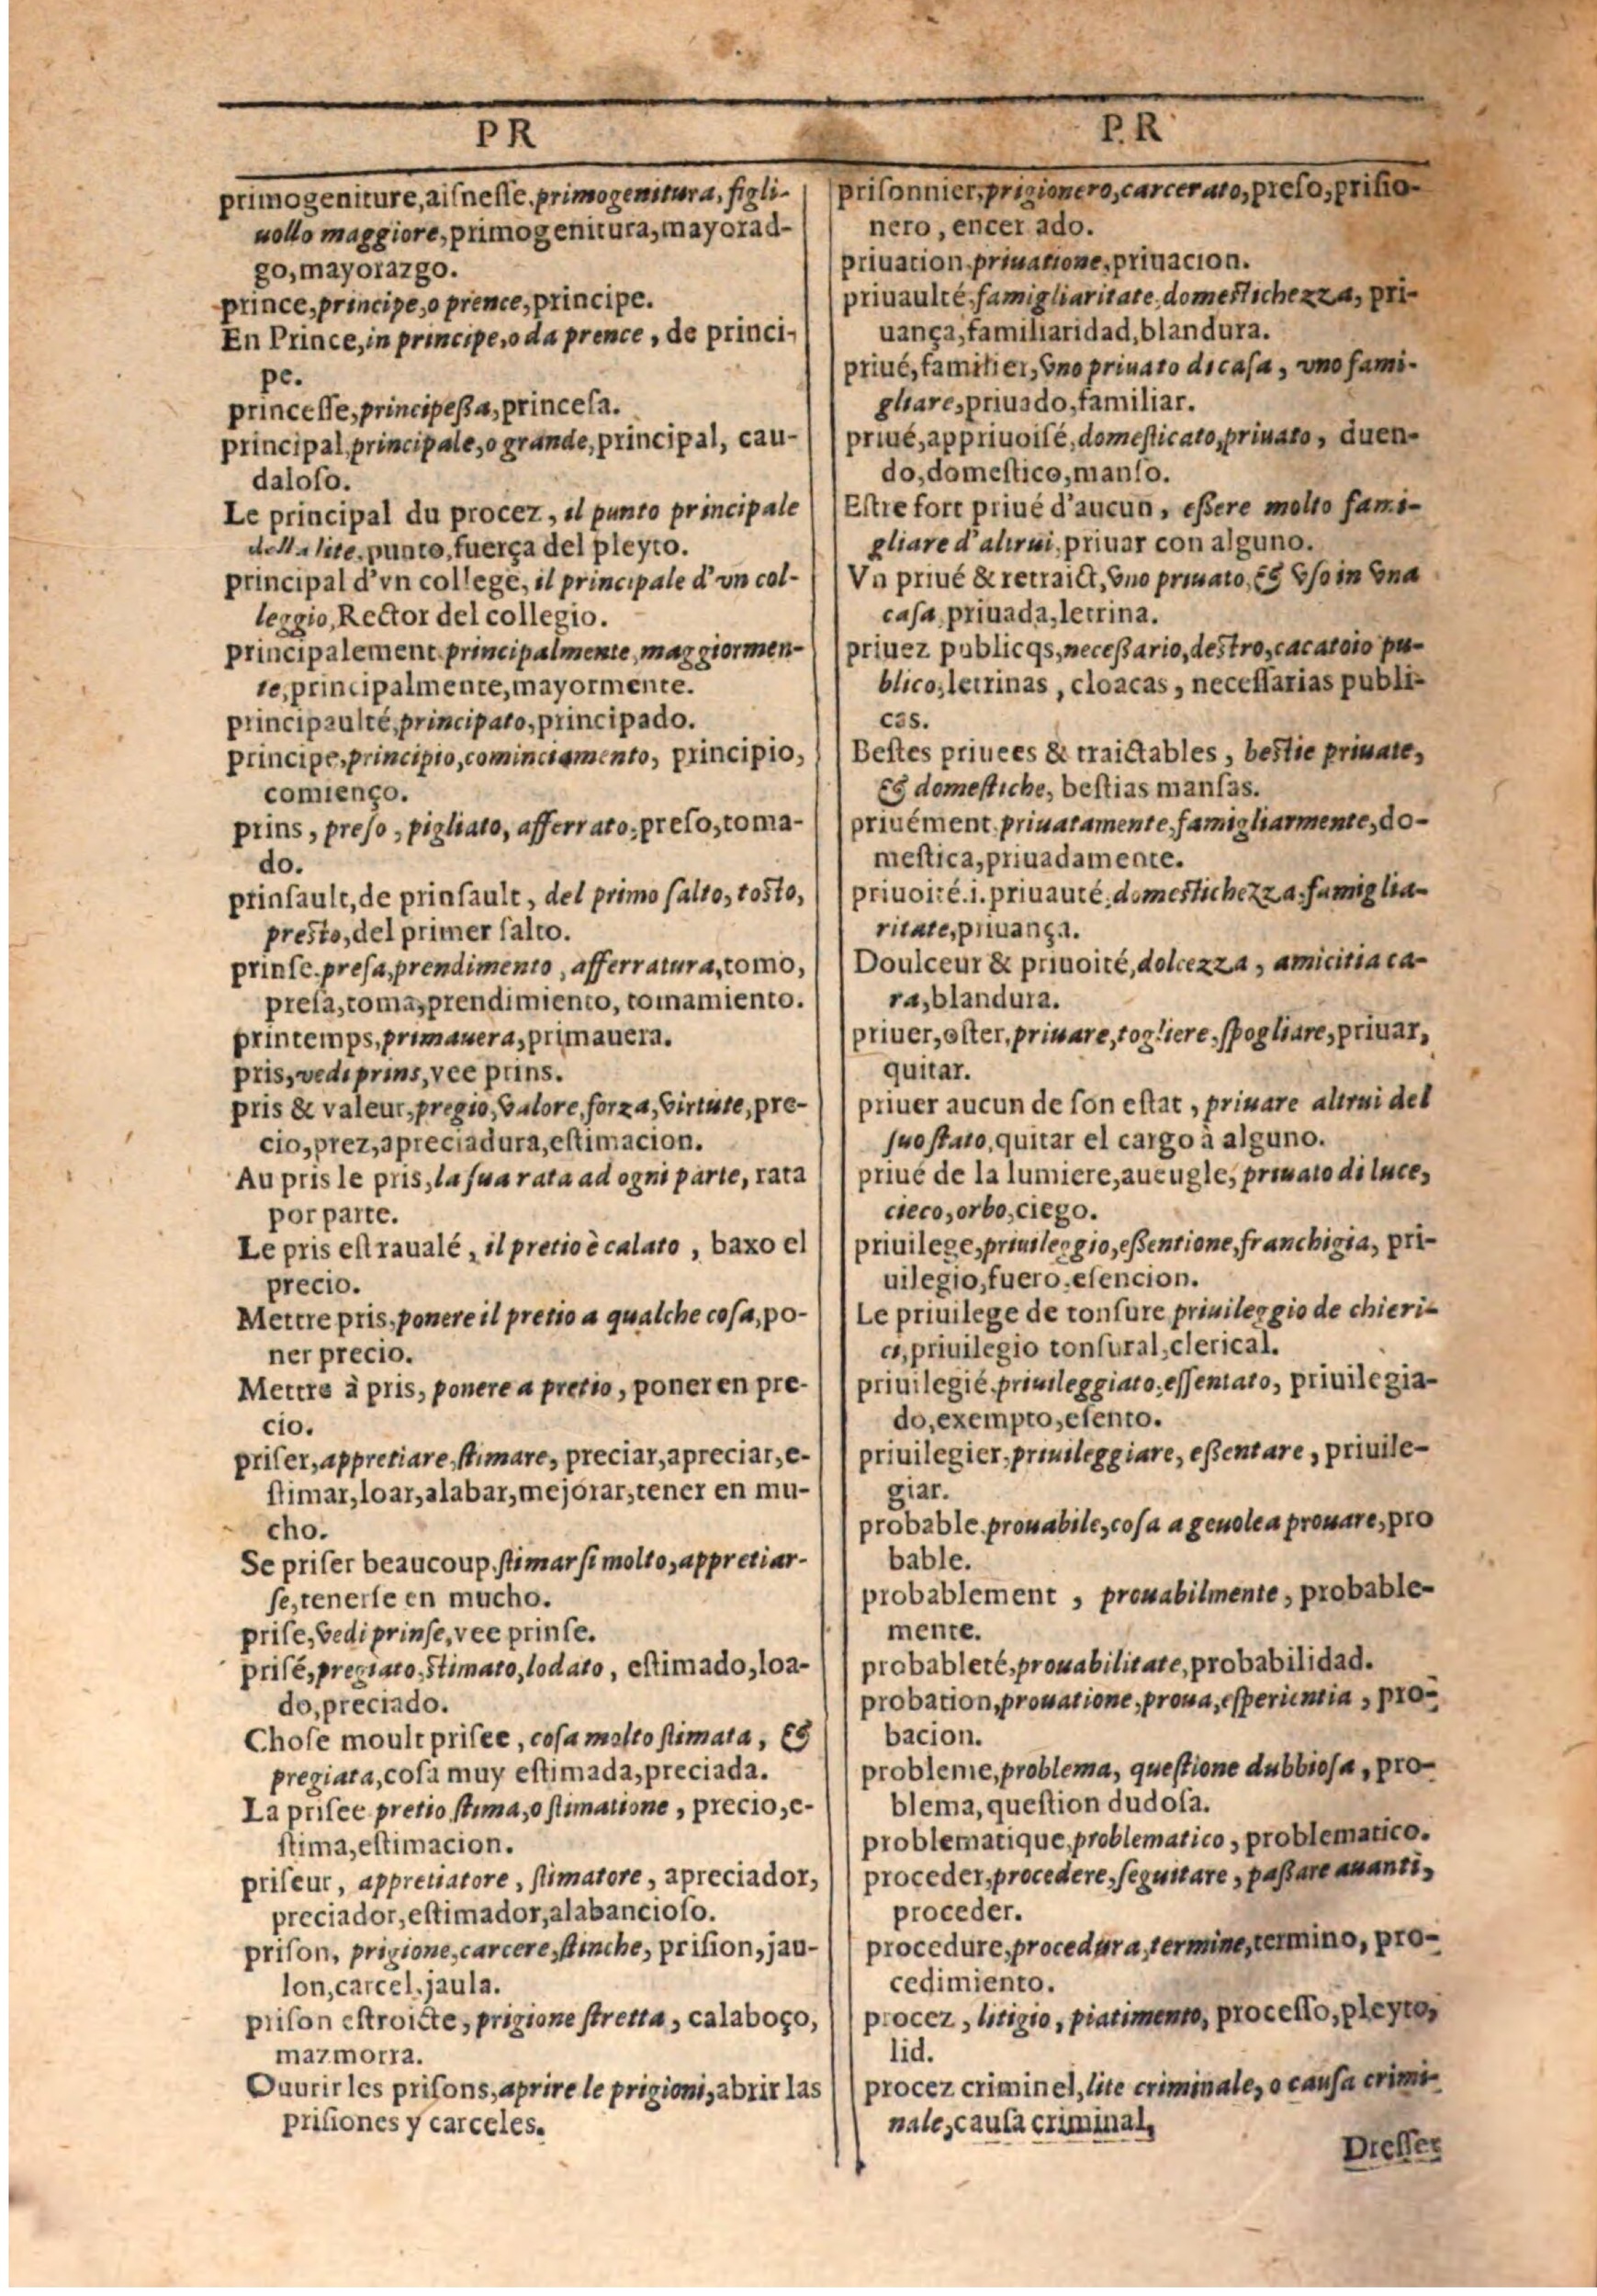 PR
primogeniture,aiſneſſe,primogenitura, figli-
uollo maggiore,primogenitura,mayorad-
go,mayorazgo.
prince,principe,o prence,principe.
En Prince,in principe,o da prence, de princi-
pe.
princeſſe,principeßa,princeſa.
principal,principale,o grande,principal, cau-
daloſo.
Le principal du procez, il punto principale
della lite,punto,fuerça del pleyto.
principal d'vn college, il principale d'vn col-
leggio,Rector del collegio.
principalement.principalmente,maggiormen-
te,principalmente,mayormente.
principaulté,principato,principado.
principe,principio,cominciamento, principio,
comienço.
prins, preſo, pigliato, afferrato,preſo,toma-
do.
prinſault,de prinſault, del primo ſalto, toſto,
preſto,del primer ſalto.
prinſe.preſa,prendimento, afferratura,tomo,
preſa,toma,prendimiento, tomamiento.
printemps,primauera,primauera.
pris,vedi prins,vee prins.
pris & valeur,pregio,valore,forza,virtute,pre-
cio,prez,apreciadura,eſtimacion.
Au pris le pris,la ſua rata ad ogni parte, rata
por parte.
Le pris eſt raualé, il pretio è calato, baxo el
precio.
Mettre pris,ponere il pretio a qualche coſa,po-
ner precio.
Mettre à pris, ponere a pretio, poner en pre-
cio.
priſer,appretiare,ſtimare, preciar,apreciar,e-
ſtimar,loar,alabar,mejorar,tener en mu-
cho.
Se priſer beaucoup.ſtimarſi molto,appretiar-
ſe,tenerſe en mucho.
priſe,vedi prinſe,vee prinſe.
priſé,pregiato,ſtimato,lodato, eſtimado,loa-
do,preciado.
Choſe moult priſee, coſa molto ſtimata, &
pregiata,coſa muy eſtimada,preciada.
La priſee pretio,ſtima,o ſtimatione, precio,e-
ſtima,eſtimacion.
priſeur, appretiatore, ſtimatore, apreciador,
preciador,eſtimador,alabancioſo.
priſon, prigione,carcere,ſtinche, priſion,jau-
lon,carcel,jaula.
priſon eſtroicte, prigione ſtretta, calaboço,
mazmorra.
Ouurir les priſons,aprire le prigioni,abrir las
priſiones y carceles.
P.R
priſonnier,prigionero,carcerato,preſo,priſio-
nero, encer ado.
priuation.priuatione,priuacion.
priuaulté,famigliaritate,domeſtichezza, pri-
uança,familiaridad,blandura.
priué,familier,vno priuato di caſa, vno fami-
gliare,priuado,familiar.
priué,appriuoiſé,domeſticato,priuato, duen-
do,domeſtico,manſo.
Eſtre fort priué d'aucun, eßere molto fami-
gliare d'altrui,priuar con alguno.
Vn priué & retraict,vno priuato,& vſo in vna
caſa,priuada,letrina.
priuez publicqs,neceßario,deſtro,cacatoio pu-
blico,letrinas, cloacas, neceſſarias publi-
cas.
Beſtes priuees & traictables, beſtie priuate,
& domeſtiche, beſtias manſas.
priuément,priuatamente,famigliarmente,do-
meſtica,priuadamente.
priuoité.i.priuauté,domeſtichezza,famiglia-
ritate,priuança.
Doulceur & priuoité,dolcezza, amicitia ca-
ra,blandura.
priuer,oſter,priuare,togliere,ſpogliare,priuar,
quitar.
priuer aucun de ſon eſtat, priuare altrui del
ſuo ſtato,quitar el cargo à alguno.
priué de la lumiere,aueugle, priuato di luce,
cieco,orbo,ciego.
priuilege,priuileggio,eßentione,franchigia, pri-
uilegio,fuero,eſencion.
Le priuilege de tonſure priuileggio de chieri-
ci,priuilegio tonſural,clerical.
priuilegié,priuileggiato,eſſentato, priuilegia-
do,exempto,eſento.
priuilegier,priuileggiare, eßentare, priuile-
giar.
probable.prouabile,coſa ageuole a prouare,pro
bable.
probablement, prouabilmente, probable-
mente.
probableté,prouabilitate,probabilidad.
probation,prouatione,proua,eſperientia, pro-
bacion.
probleme,problema, queſtione dubbioſa, pro-
blema,queſtion dudoſa.
problematique,problematico, problematico.
proceder,procedere,ſeguitare, paßare auanti,
proceder.
procedure,procedura,termine,termino, pro-
cedimiento.
procez, litigio, piatimento, proceſſo,pleyto,
lid.
procez criminel,lite criminale, o cauſa crimi-
nale,cauſa criminal,
Dreſſer